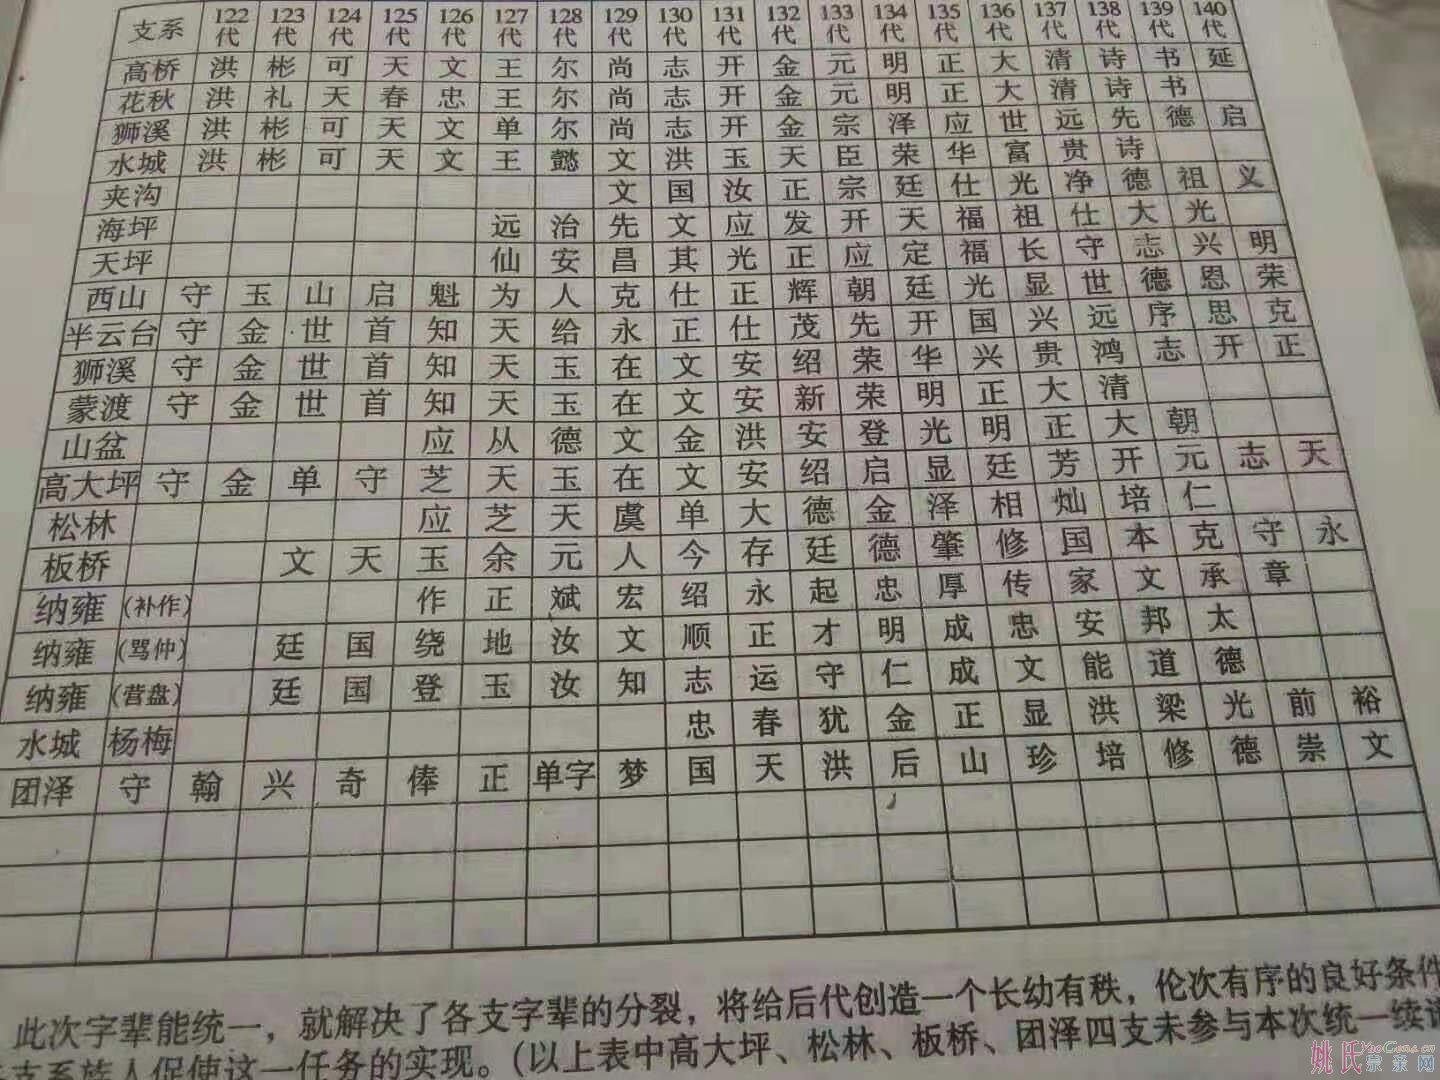 支系 122代 123代 124代 125代 126代 127代 128代 129代 130代 131代 132代 133代 134代 135代 136代 137代 138代 139代 140代
高桥 洪 彬 可 天 文 王 尔 尚 志 开 金 元 明 正 大 清 诗 书 延
花秋 洪 礼 天 春 忠 王 尔 尚 志 开 金 元 明 正 大 清 诗 书
狮溪 洪 彬 可 天 文 单 尔 尚 志 开 金 宗 泽 应 世 远 先 德 启
水城 洪 彬 可 天 文 王 懿 文 洪 玉 天 臣 荣 华 富 贵 诗
夹沟 文 国 汝 正 宗 廷 仕 光 净 德 祖 义
海坪 远 治 先 文 应 发 开 天 福 祖 仕 大 光
天坪 仙 安 昌 其 光 正 应 定 福 长 守 志 兴 明
西山 守 玉 山 启 魁 为 人 克 仕 正 辉 朝 廷 光 显 世 德 恩 荣
半云台 守 金 世 首 知 天 给 永 正 仕 茂 先 开 国 兴 远 序 思 克
狮溪 守 金 世 首 知 天 玉 在 文 安 绍 荣 华 兴 贵 鸿 志 开 正
蒙渡 守 金 世 首 知 天 玉 在 文 安 新 荣 明 正 大 清
山盆 应 从 德 文 金 洪 安 登 光 明 正 大 朝
高大坪 守 金 单 守 芝 天 玉 在 文 安 绍 启 显 廷 芳 开 元 志 天
松林 应 芝 天 虞 单 大 德 金 泽 相 灿 培 仁
板桥 文 天 玉 余 元 人 今 存 廷 德 肇 修 国 本 克 守 永
纳雍 (补作) 作 正 斌 宏 绍 永 起 忠 厚 传 家 文 承 章
纳雍 (骂仲) 廷 国 绕 地 汝 文 顺 正 才 明 成 忠 安 邦 太
纳雍 (营盘) 廷 国 登 玉 汝 知 志 运 守 仁 成 文 能 道 德
水城 杨梅 忠 春 犹 金 正 显 洪 梁 光 前 裕
团泽 守 翰 兴 奇 俸 正 单字 梦 国 天 洪 后 山 珍 培 修 德 崇 文
此次字辈能统一，就解决了各支字辈的分裂，将给后代创造一个长幼有秩，伦次有序的良好条件
支系族人促使这一任务的实现。(以上表中高大坪、松林、板桥、团泽四支未参与本次统一续谱
姚氏宗亲网
YaoGens.cn